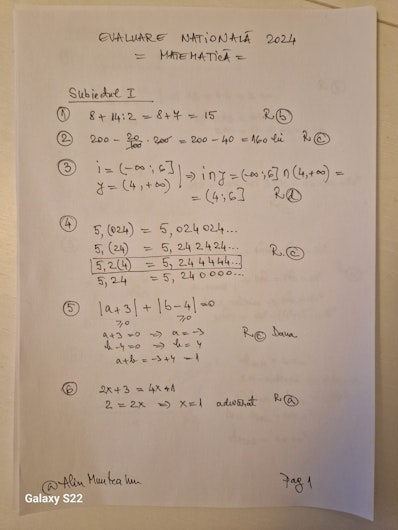 EVALUARE NAȚIONALĂ 2024
= MATEMATICĂ =
Subiectul I
① 8 + 14:2 = 8+7 = 15 R ⓑ
② 200 - 20/100 · 200 = 200 - 40 = 160 lei R ⓒ
③ i = (-∞; 6] | ⇒ i ∩ y = (-∞; 6] ∩ (4, +∞) =
y = (4, +∞) | = (4; 6] R ⓓ
④ 5,(024) = 5,024024...
5,(24) = 5,242424...
5,2(4) = 5,244444... R ⓒ
5,24 = 5,240000...
⑤ |a+3| + |b-4| = 0
≥0 ≥0
a+3=0 ⇒ a=-3
b-4=0 ⇒ b=4 R ⓒ Dana
a+b = -3+4 = 1
⑥ 2x+3 = 4x+1
2 = 2x ⇒ x=1 adevărat R ⓐ
@ Alin Munteanu Pag 1
Galaxy S22